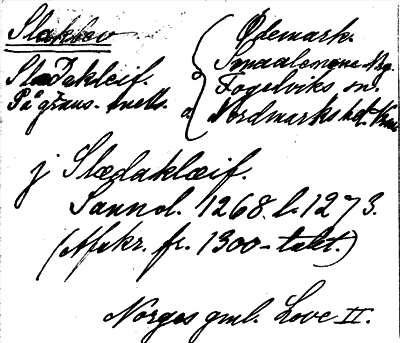 Slaklev
Slædekleif.
På gräns. mell.
Ødemark.
Smaalenene Ng.
Fogelviks sn.
Nordmarks hd.
j Slædaklæif.
Sannol. 1268 l. 1273.
(Afskr. fr. 1300-talet.)
Norges gml. Love II.